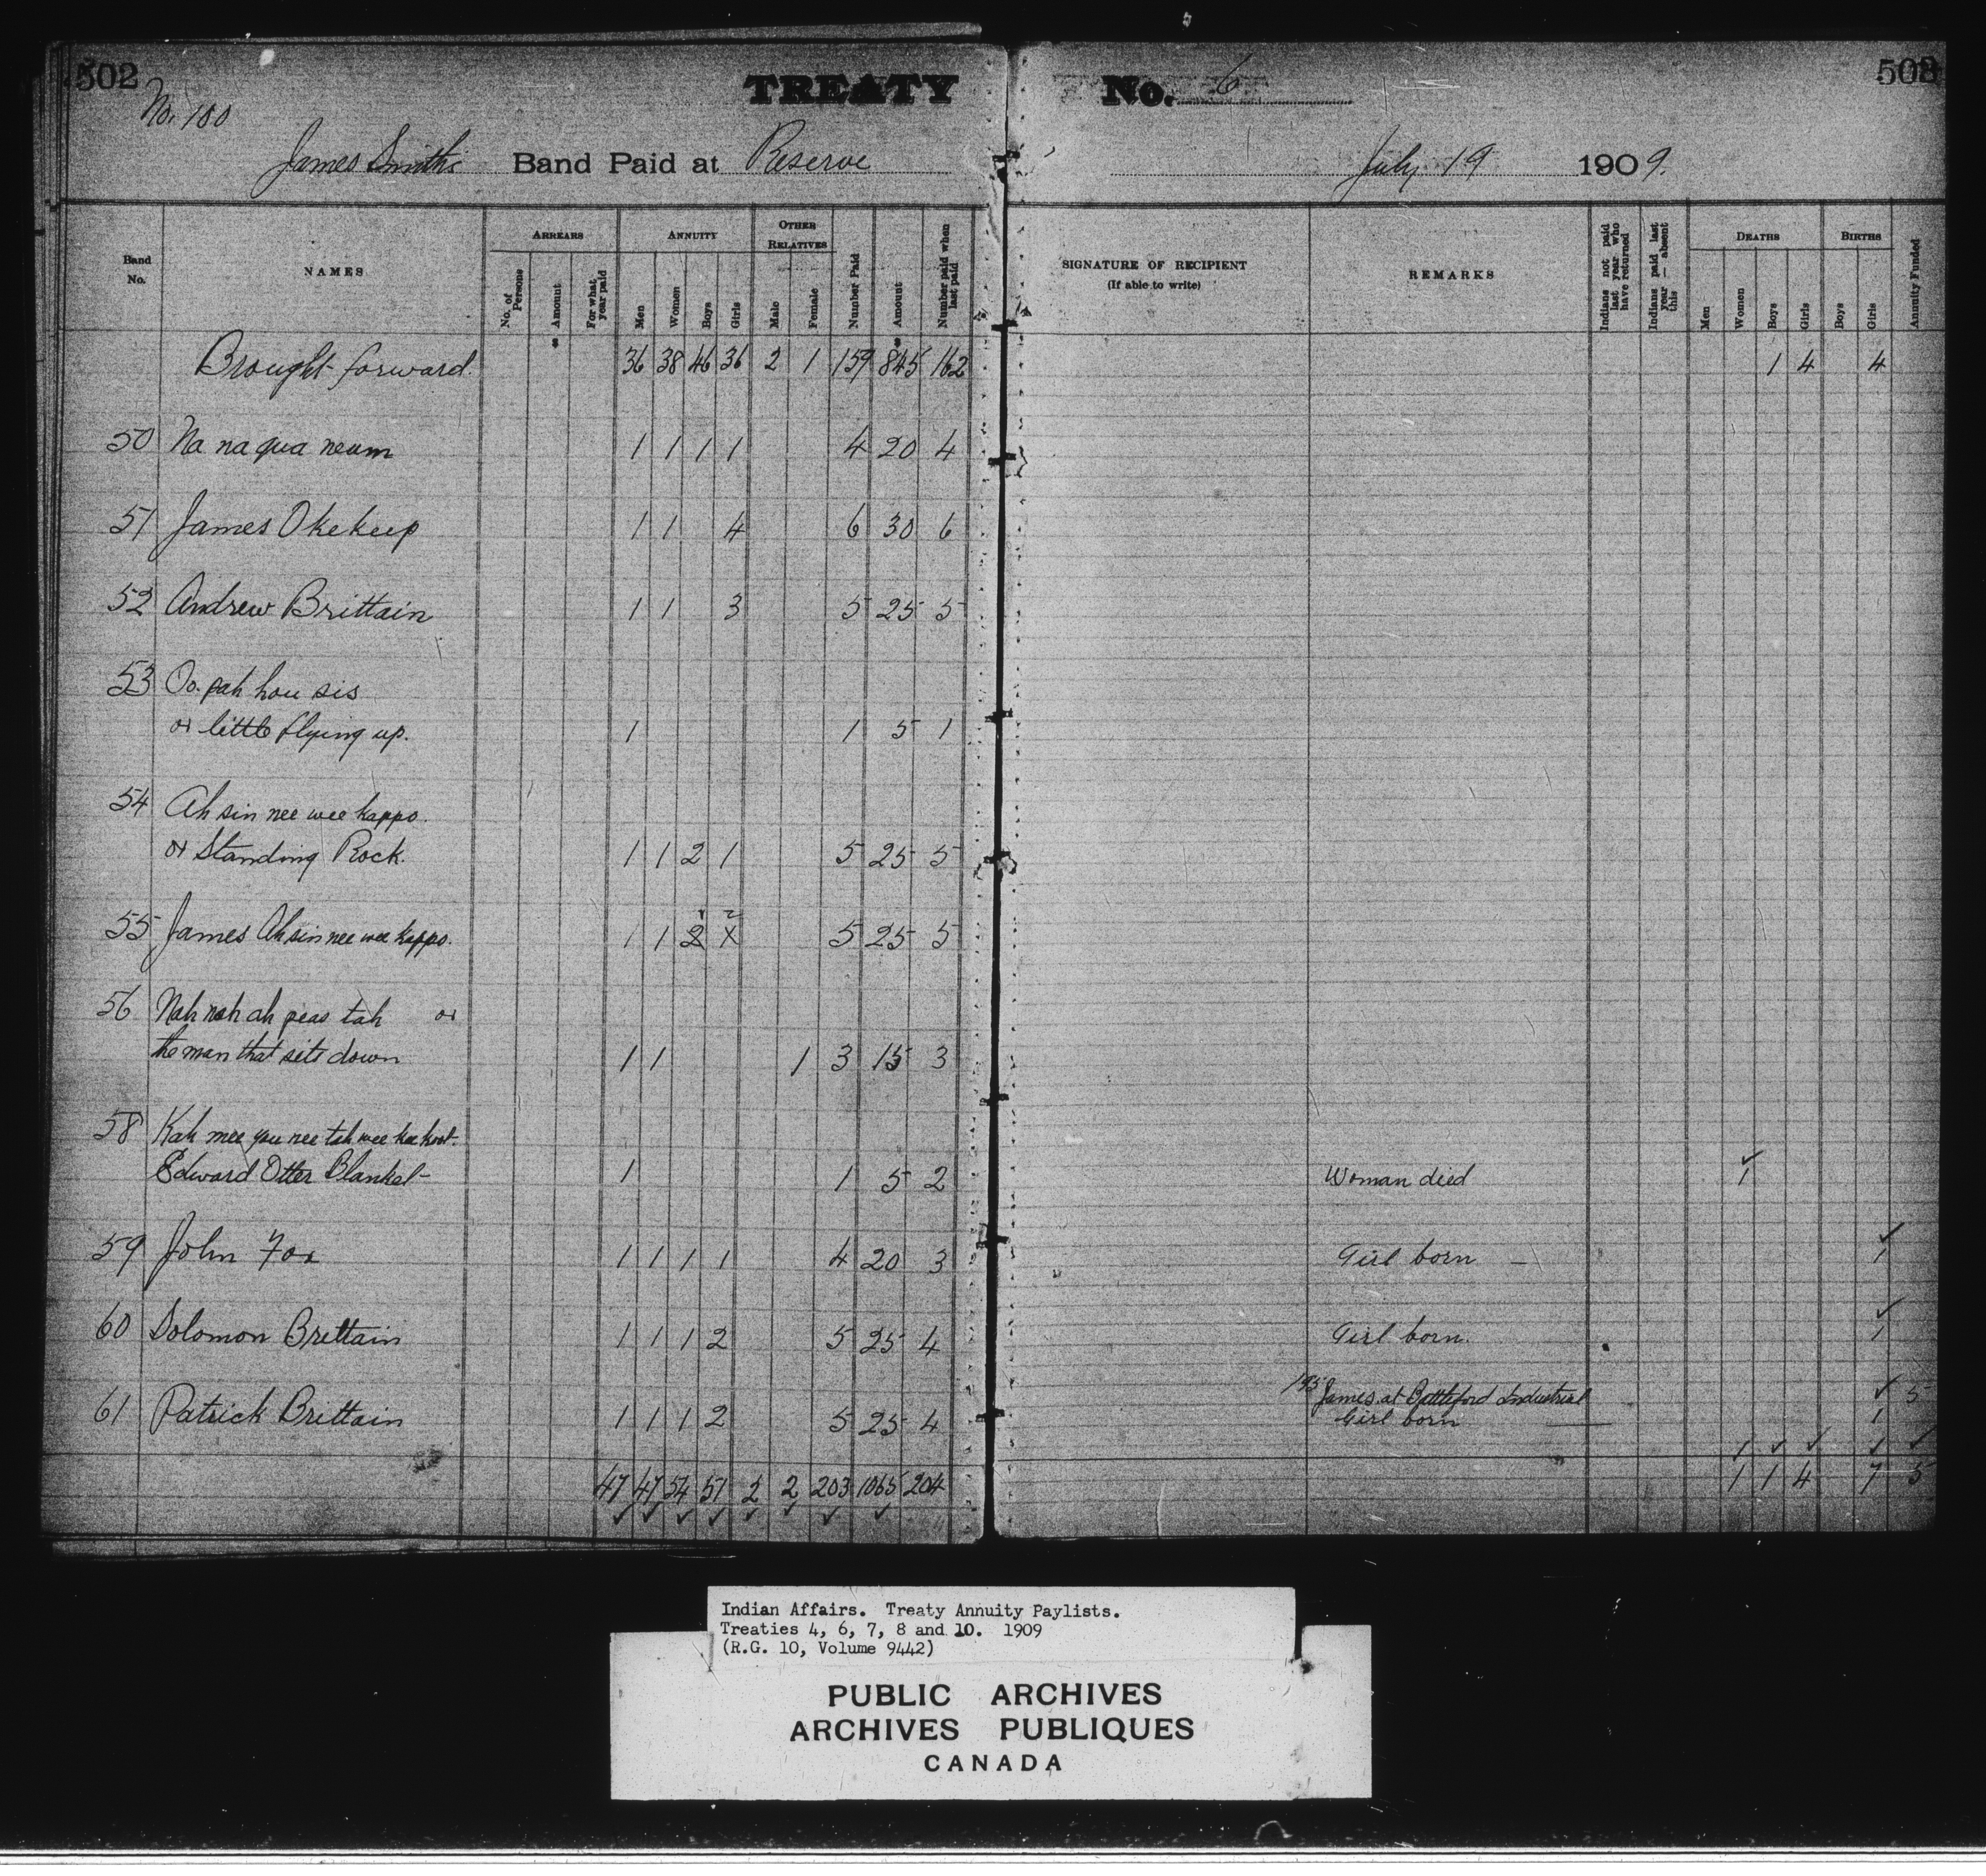 502
TREATY No. 6
503
No. 100
James Smith's Band Paid at Reserve
July 19 1909.
Band No.
NAMES
ARREARS
No. of Persons
Amount
For what year paid
ANNUITY
Men
Women
Boys
Girls
OTHER RELATIVES
Male
Female
Number Paid
Amount
Number paid when last paid
SIGNATURE OF RECIPIENT
(If able to write)
REMARKS
Indians not paid last year who have returned
Indians paid last year — absent this
DEATHS
Men
Women
Boys
Girls
BIRTHS
Boys
Girls
Annuity Funded
$ $
Brought forward. 36 38 46 36 2 1 159 845 162 1 4 4
50 Na na qua neum 1 1 1 1 4 20 4
51 James Okekeep 1 1 4 6 30 6
52 Andrew Brittain 1 1 3 5 25 5
53 Oo. pah hou sis
or little flying up. 1 1 5 1
54 Ah sin nee wee kappo.
or Standing Rock. 1 1 2 1 5 25 5
55 James Ah sin nee wee kappo. 1 1 2 5 25 5
56 Nah nah ah peas tah or
the man that sits down 1 1 1 3 15 3
58 Kah mee you nee tah wee
Edward Otter Blanket 1 1 5 2 Woman died 1
59 John Fox 1 1 1 1 4 20 3 Girl born — 1
60 Solomon Brittain 1 1 1 2 5 25 4 Girl born. 1
James at Battleford Industrial 5
61 Patrick Brittain 1 1 1 2 5 25 4 Girl born 1
47 47 54 51 2 2 203 1065 204 1 1 4 7 5
Indian Affairs. Treaty Annuity Paylists.
Treaties 4, 6, 7, 8 and 10. 1909
(R.G. 10, Volume 9442)
PUBLIC ARCHIVES
ARCHIVES PUBLIQUES
CANADA